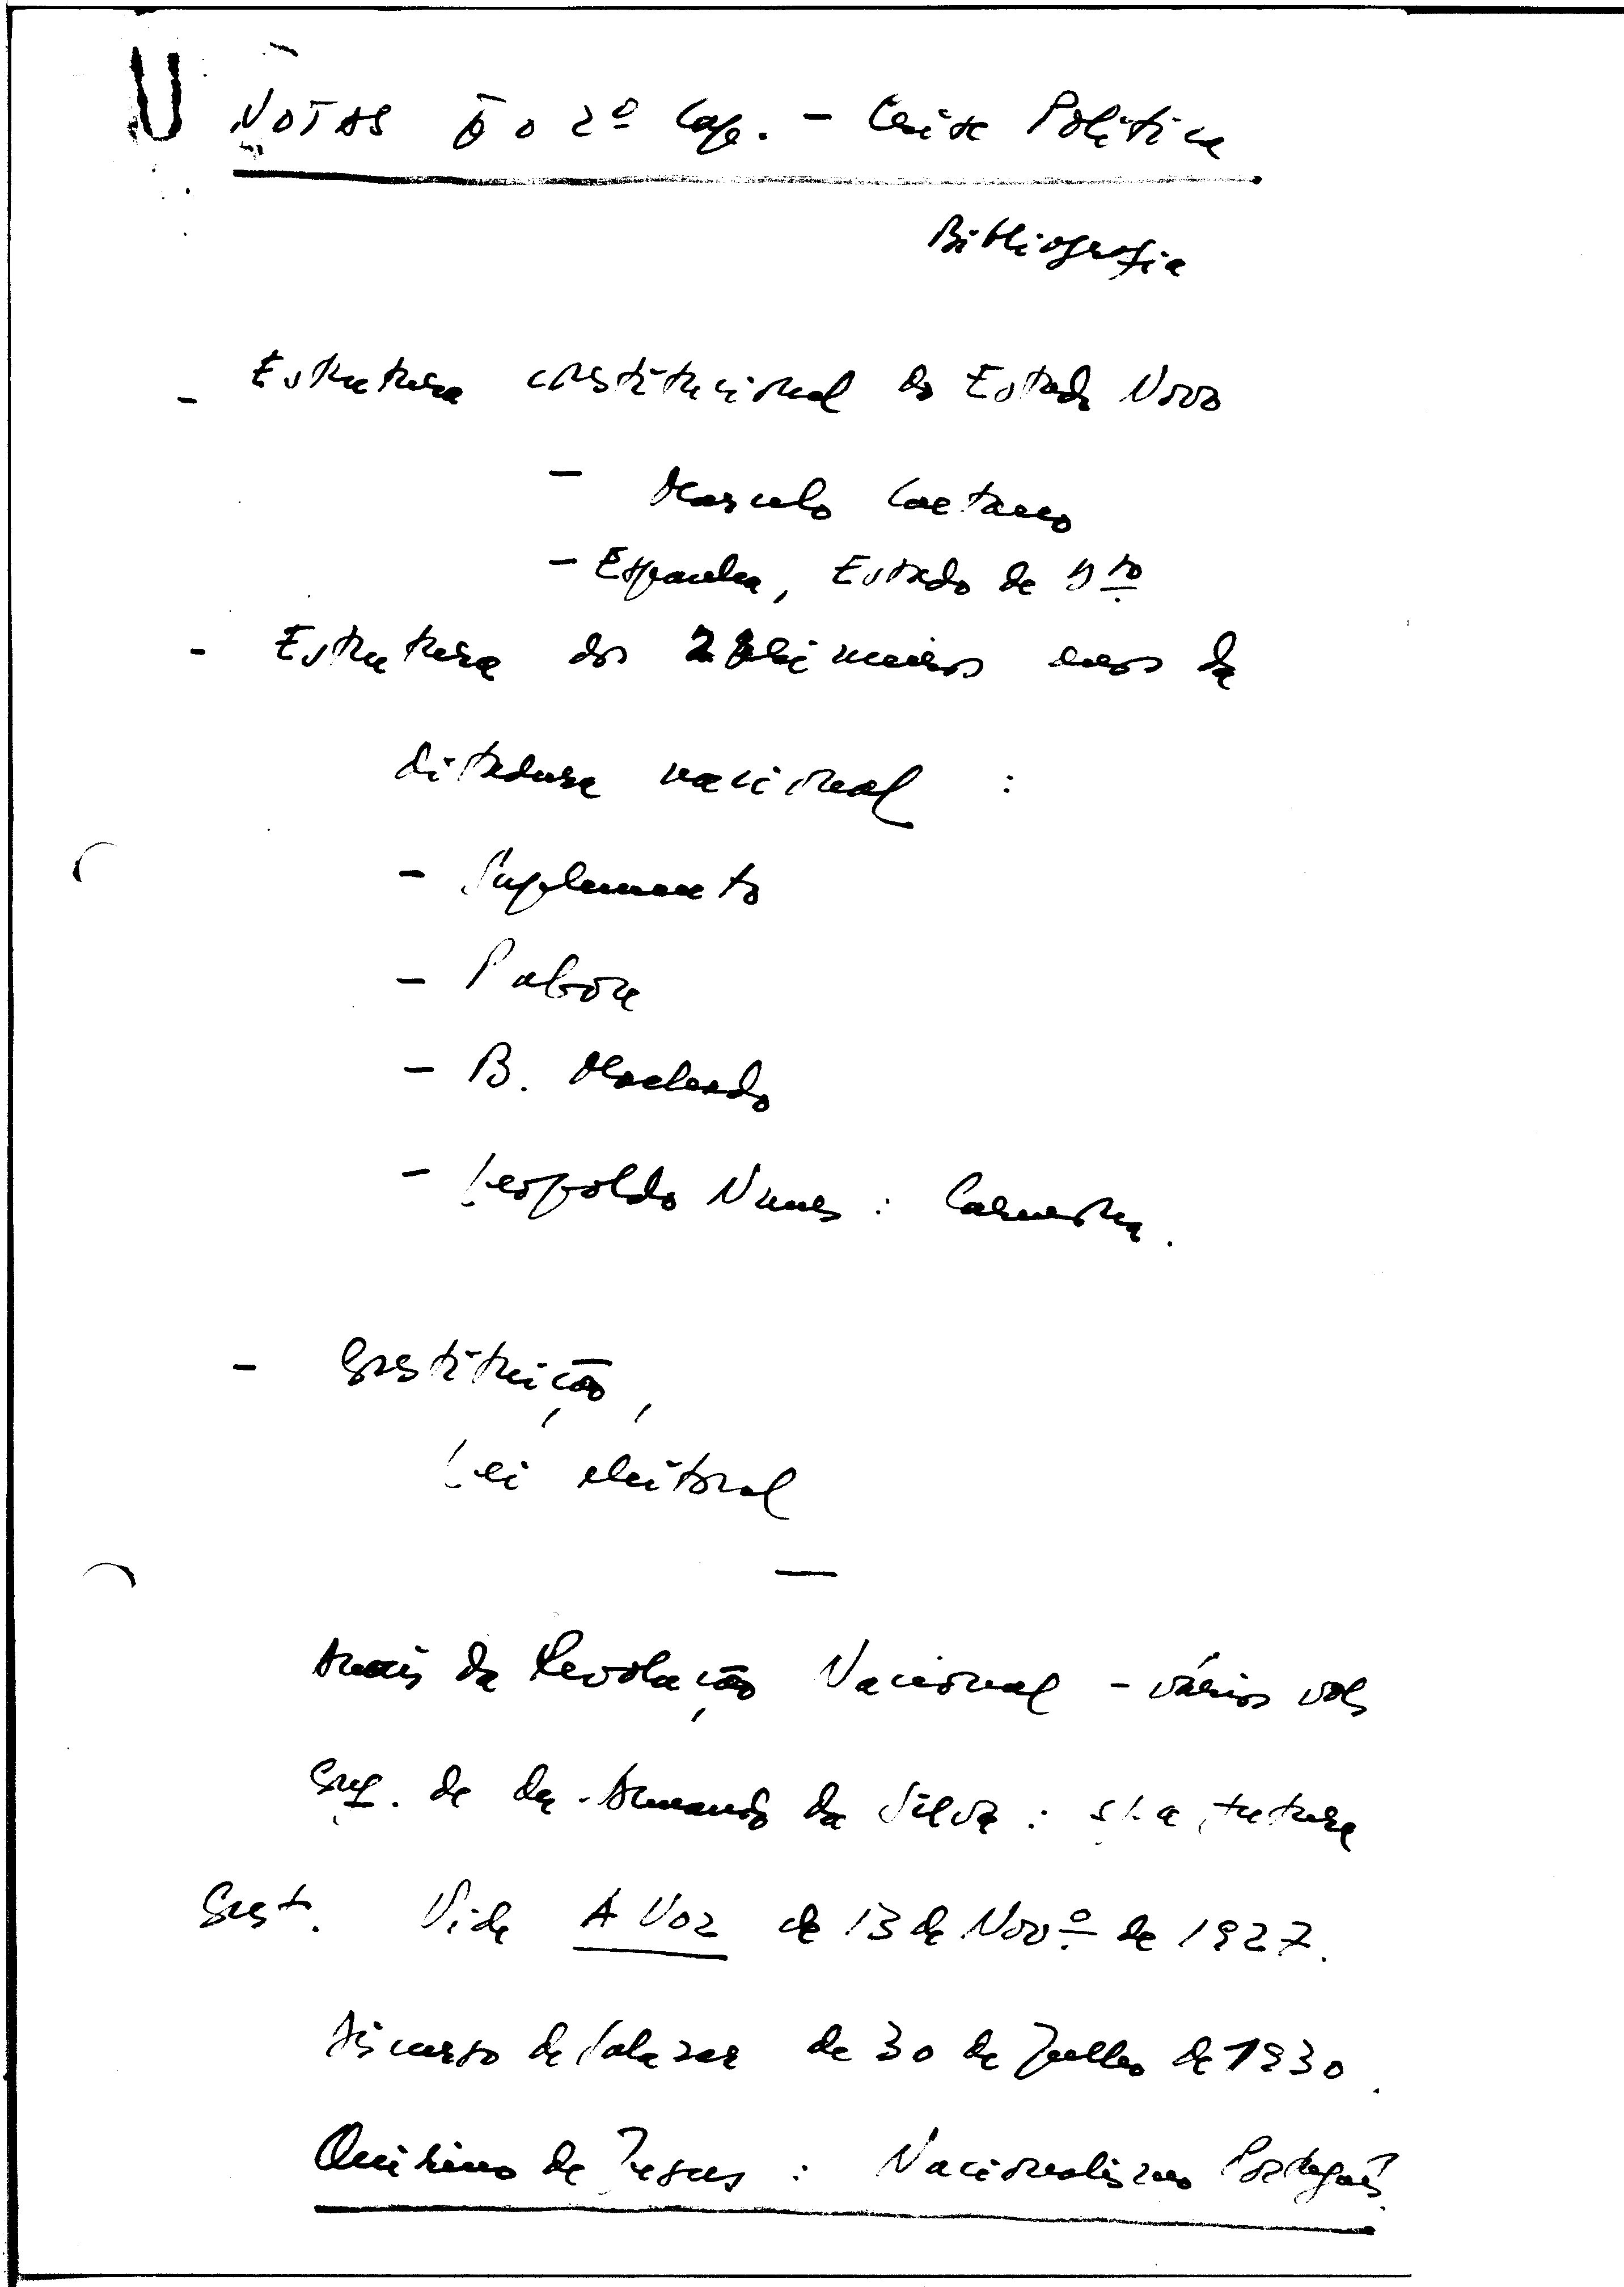 U NOTAS p̄ o 2º Cap. - Crise Política
Bibliografia
- Estrutura constitucional do Estado Novo
- Marcelo Caetano
- Espanha, Estado de Dtº
- Estrutura dos primeiros anos da
ditadura nacional :
- Suplemento
- Pabón
- B. Machado
- Leopoldo Nunes : Carmona.
- Constituição,
Lei eleitoral
—
Anais da Revolução Nacional - vários vols
Conf. de Armando da Silva : s/ a futura
Const. Vide A Voz de 13 de Novº de 1927.
Discurso de Salazar de 30 de Julho de 1930.
Quirino de Jesus : Nacionalismo Português.